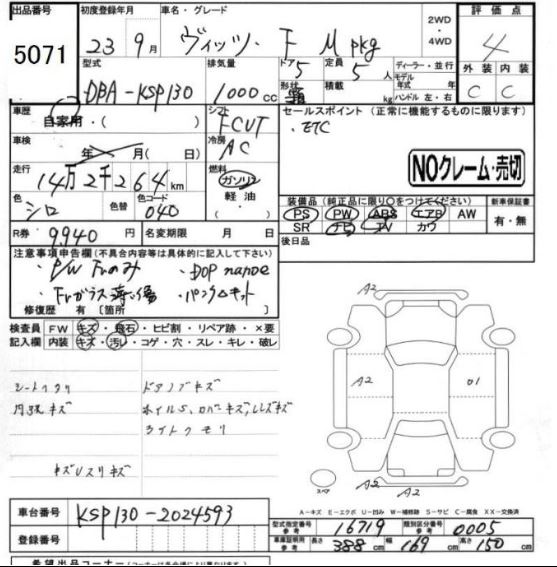 出品番号 初度登録年月 車名・グレード 2WD・4WD 評価点
5071 23年 9月 ヴィッツ・ F M pkg 4
型式 排気量 ドア 定員 ディーラー・並行 外装 内装
DBA-KSP130 1000cc 5 5人 モデル年式 年
形状 積載 kg ハンドル 左・右 C C
車歴 シフト セールスポイント（正常に機能するものに限ります）
自家用・( ) FCVT ・ETC
車検 冷房
年 月(日) AC
走行 燃料 NOクレーム・売切
14万2千264km ガソリン・軽油
色 色替 色コード 装備品（純正品に限り○をつけてください） 新車保証書
シロ 040 PS PW ABS エアB AW 有・無
R券 9,940円 名変期限 月 日 SR ナビ TV カワ
後日品
注意事項申告欄（不具合内容等は具体的に記入して下さい）
・P/W Frのみ ・DOP nanoe
・Frガラス 薄い傷 ・パンクキット
修復歴 有〔箇所 〕
検査員記入欄 FW キズ・飛石・ヒビ割・リペア跡・×要
内装 キズ・汚レ・コゲ・穴・スレ・キレ・破レ
A2
シートヨゴレ ドアノブキズ
内張キズ ホイルS、カバーキズ、レンズキズ
ライトクモリ
A2 U1
キズUスリキズ
スペア A2 A2
A－キズ E－エクボ U－凹み W－補修跡 S－サビ C－腐食 XX－交換済
車台番号 KSP130-2024593
登録番号
型式指定番号 参考 16719 類別区分番号 参考 0005
車庫証明用 参考 長さ 388cm 幅 169cm 高さ 150cm
希望出品コーナー